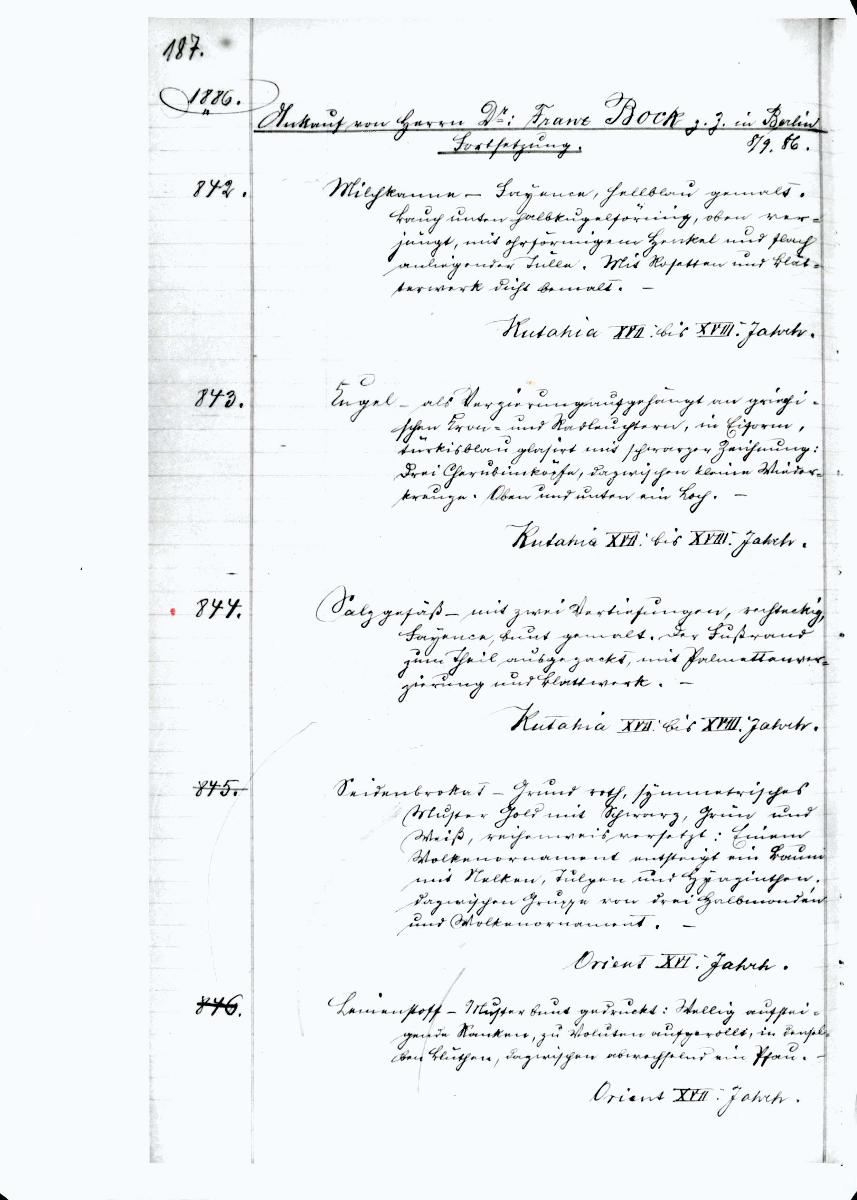 187.
1886.
Ankauf von Herrn Dr: Franz Bock z. Z. in Berlin
Fortsetzung. 8/9. 86.
842. Milchkanne – Fayence, hellblau gemalt.
Bauch unten halbkugelförmig, oben ver=
jüngt, mit ohrförmigem Henkel und flach
anliegender Tülle. Mit Rosetten und Blät=
terwerk dicht bemalt. –
Kutahia XVII. bis XVIII. Jahrh.
843. Kugel – als Verzierung aufgehängt an griechi=
schen Kron= und Radleuchtern, in Eiform,
türkisblau glasirt mit schwarzer Zeichnung:
Drei Cherubimköpfe, dazwischen kleine Wieder=
kreuze. Oben und unten ein Loch. –
Kutahia XVII. bis XVIII. Jahrh.
844. Salzgefäß – mit zwei Vertiefungen, rechteckig,
Fayence, bunt gemalt. Der Fußrand
zum Theil ausgezackt, mit Palmettenver=
zierung und Blattwerk. –
Kutahia XVII. bis XVIII. Jahrh.
845. Seidenbrokat – Grund roth, symmetrisches
Muster Gold mit Schwarz, Grün und
Weiß, reihenweis versetzt: Einem
Wolkenornament entsteigt ein Baum
mit Nelken, Tulpen und Hyazinthen,
dazwischen Gruppe von drei Halbmonden
und Wolkenornament. –
Orient XVI. Jahrh.
846. Leinenstoff – Muster bunt gedruckt: Wellig aufstei=
gende Ranken, zu Voluten aufgerollt, in densel=
ben Blüthen, dazwischen abwechselnd ein Pfau. –
Orient XVII. Jahrh.